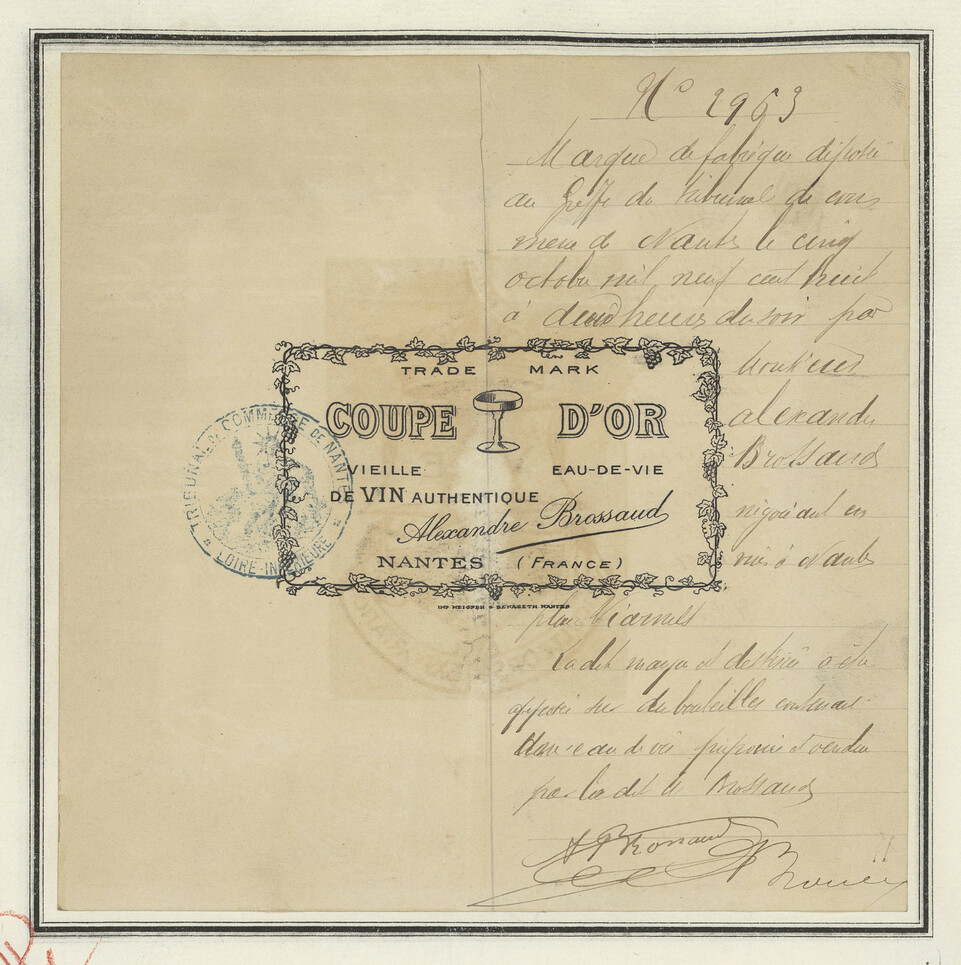 No 2963
Marque de fabrique déposée
au Greffe du Tribunal de com
merce de Nantes le cinq
octobre mil neuf cent huit
à deux heures du soir par
Monsieur
TRADE MARK
COUPE D'OR
VIEILLE EAU-DE-VIE
DE VIN AUTHENTIQUE
Alexandre Brossaud
NANTES (FRANCE)
TRIBUNAL DE COMMERCE DE NANTES
LOIRE-INFERIEURE
alexandre
Brossaud
négociant en
à Nantes
place Viarmes
La dite marque est destinée à être
apposée sur des bouteilles contenant
eau de vie préparée et vendue
par le dit Mr Brossaud
A Brossaud